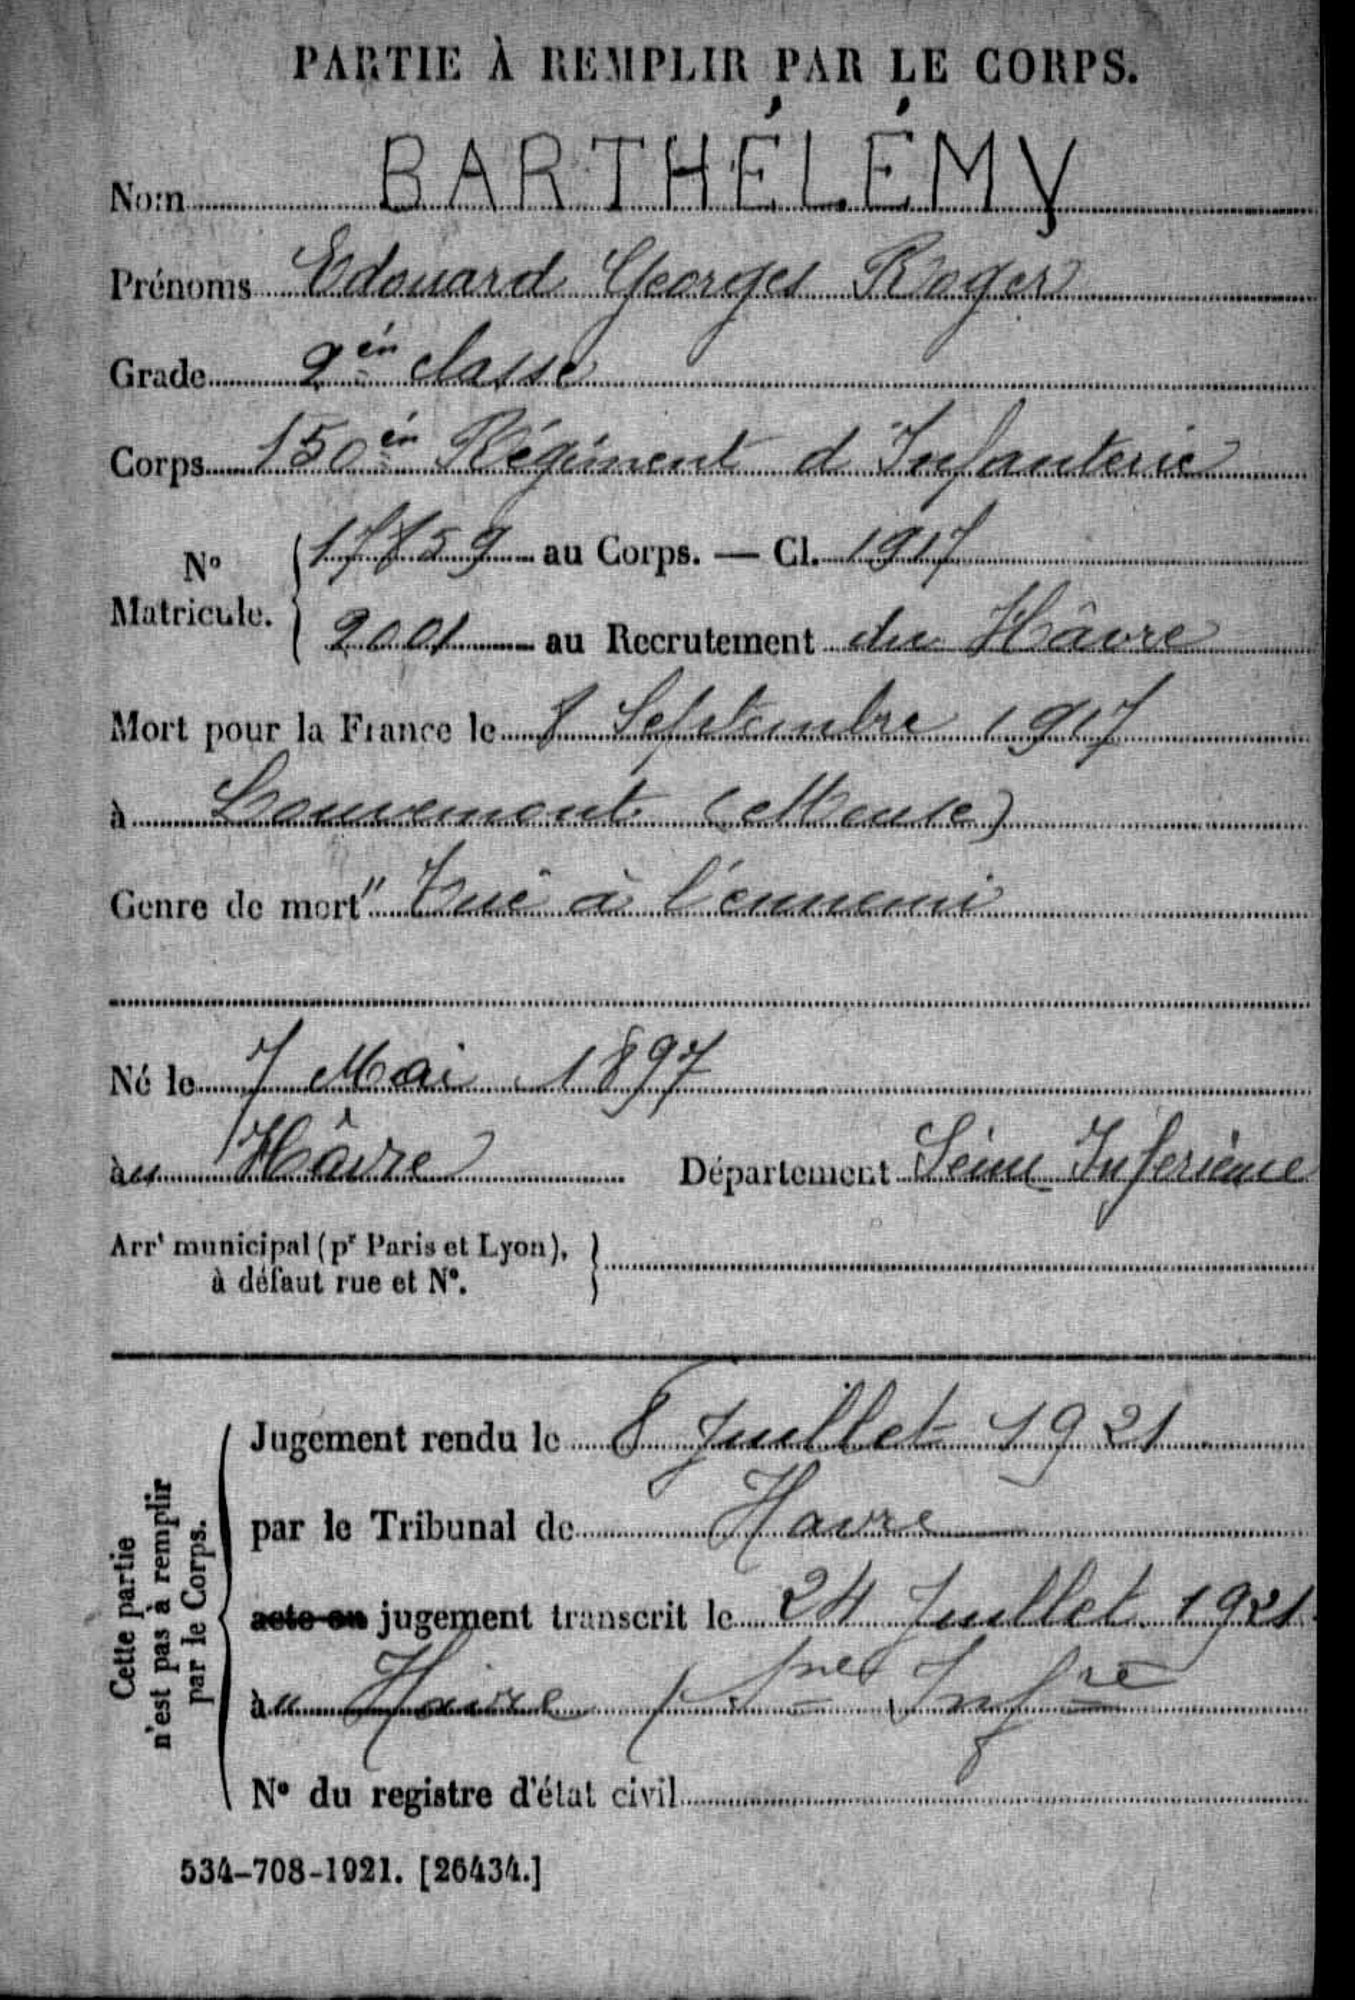 PARTIE À REMPLIR PAR LE CORPS.
Nom BARTHÉLÉMY
Prénoms Edouard Georges Roger
Grade 2èn classe
Corps 150èn Régiment d'Infanterie
N° Matricule. 17859 au Corps. — Cl. 1917
2001 au Recrutement du Hâvre
Mort pour la France le 8 Septembre 1917
à Louvemont (Meuse)
Genre de mort" Tué à l'ennemi
Né le 7 Mai 1897
au Hâvre Département Seine Inferieure
Arrt municipal (pr Paris et Lyon),
à défaut rue et N°.
Cette partie
n'est pas à remplir
par le Corps.
Jugement rendu le 8 Juillet 1921
par le Tribunal de Havre
acte ou jugement transcrit le 24 Juillet 1921
au Havre (Sne Infre
N° du registre d'état civil
534-708-1921. [26434.]